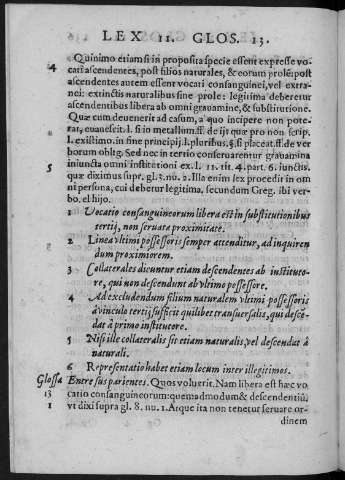 LEX 11. GLOS. 13.
Quinimo etiam si in proposita specie essent expresse vo-
4 cati ascendentes, post filios naturales, & eorum prolē: post
ascendentes autem essent vocati consanguinei, vel extra-
nei: extinctis naturalibus sine prole: legitima deberetur
ascendentibus libera ab omni grauamine, & substitutione.
Quæ cum deuenerit ad casum, a quo incipere non pote-
rat, euanescit. l. si in metallum. ff. de ijs quæ pro non scrip.
l. existimo. in fine principij. l. pluribus. §. si placeat. ff. de ver
borum oblig. Sed nec in tertio conseruarentur grauamina
5 iniuncta omni institutioni ex l. 11. tit. 4. part. 6. iunctis,
quæ diximus supr. gl. 3. nu. 2. Illa enim lex procedit in om
ni persona, cui debetur legitima, secundum Greg. ibi ver-
bo. el hijo.
1 Vocatio consanguineorum libera est in substitutionibus
tertij, non seruata proximitate.
2 Linea vltimi possessoris semper attenditur, ad inquiren
dum proximiorem.
3 Collaterales dicuntur etiam descendentes ab instituto-
re, qui non descendunt ab vltimo possessore.
4 Ad excludendum filium naturalem vltimi possessoris
à vinculo tertij sufficit quilibet transuersalis, qui descē-
dat à primo institutore.
5 Nisi ille collateralis sit etiam naturalis, vel descendat à
naturali.
6 Representatio habet etiam locum inter illegitimos.
Glossa Entre sus parientes. Quos voluerit. Nam libera est hæc vo
13 catio consanguineorum: quemadmodum & descendentiū,
1 vt dixi supra gl. 8. nu. 1. Atque ita non tenetur seruare or-
dinem